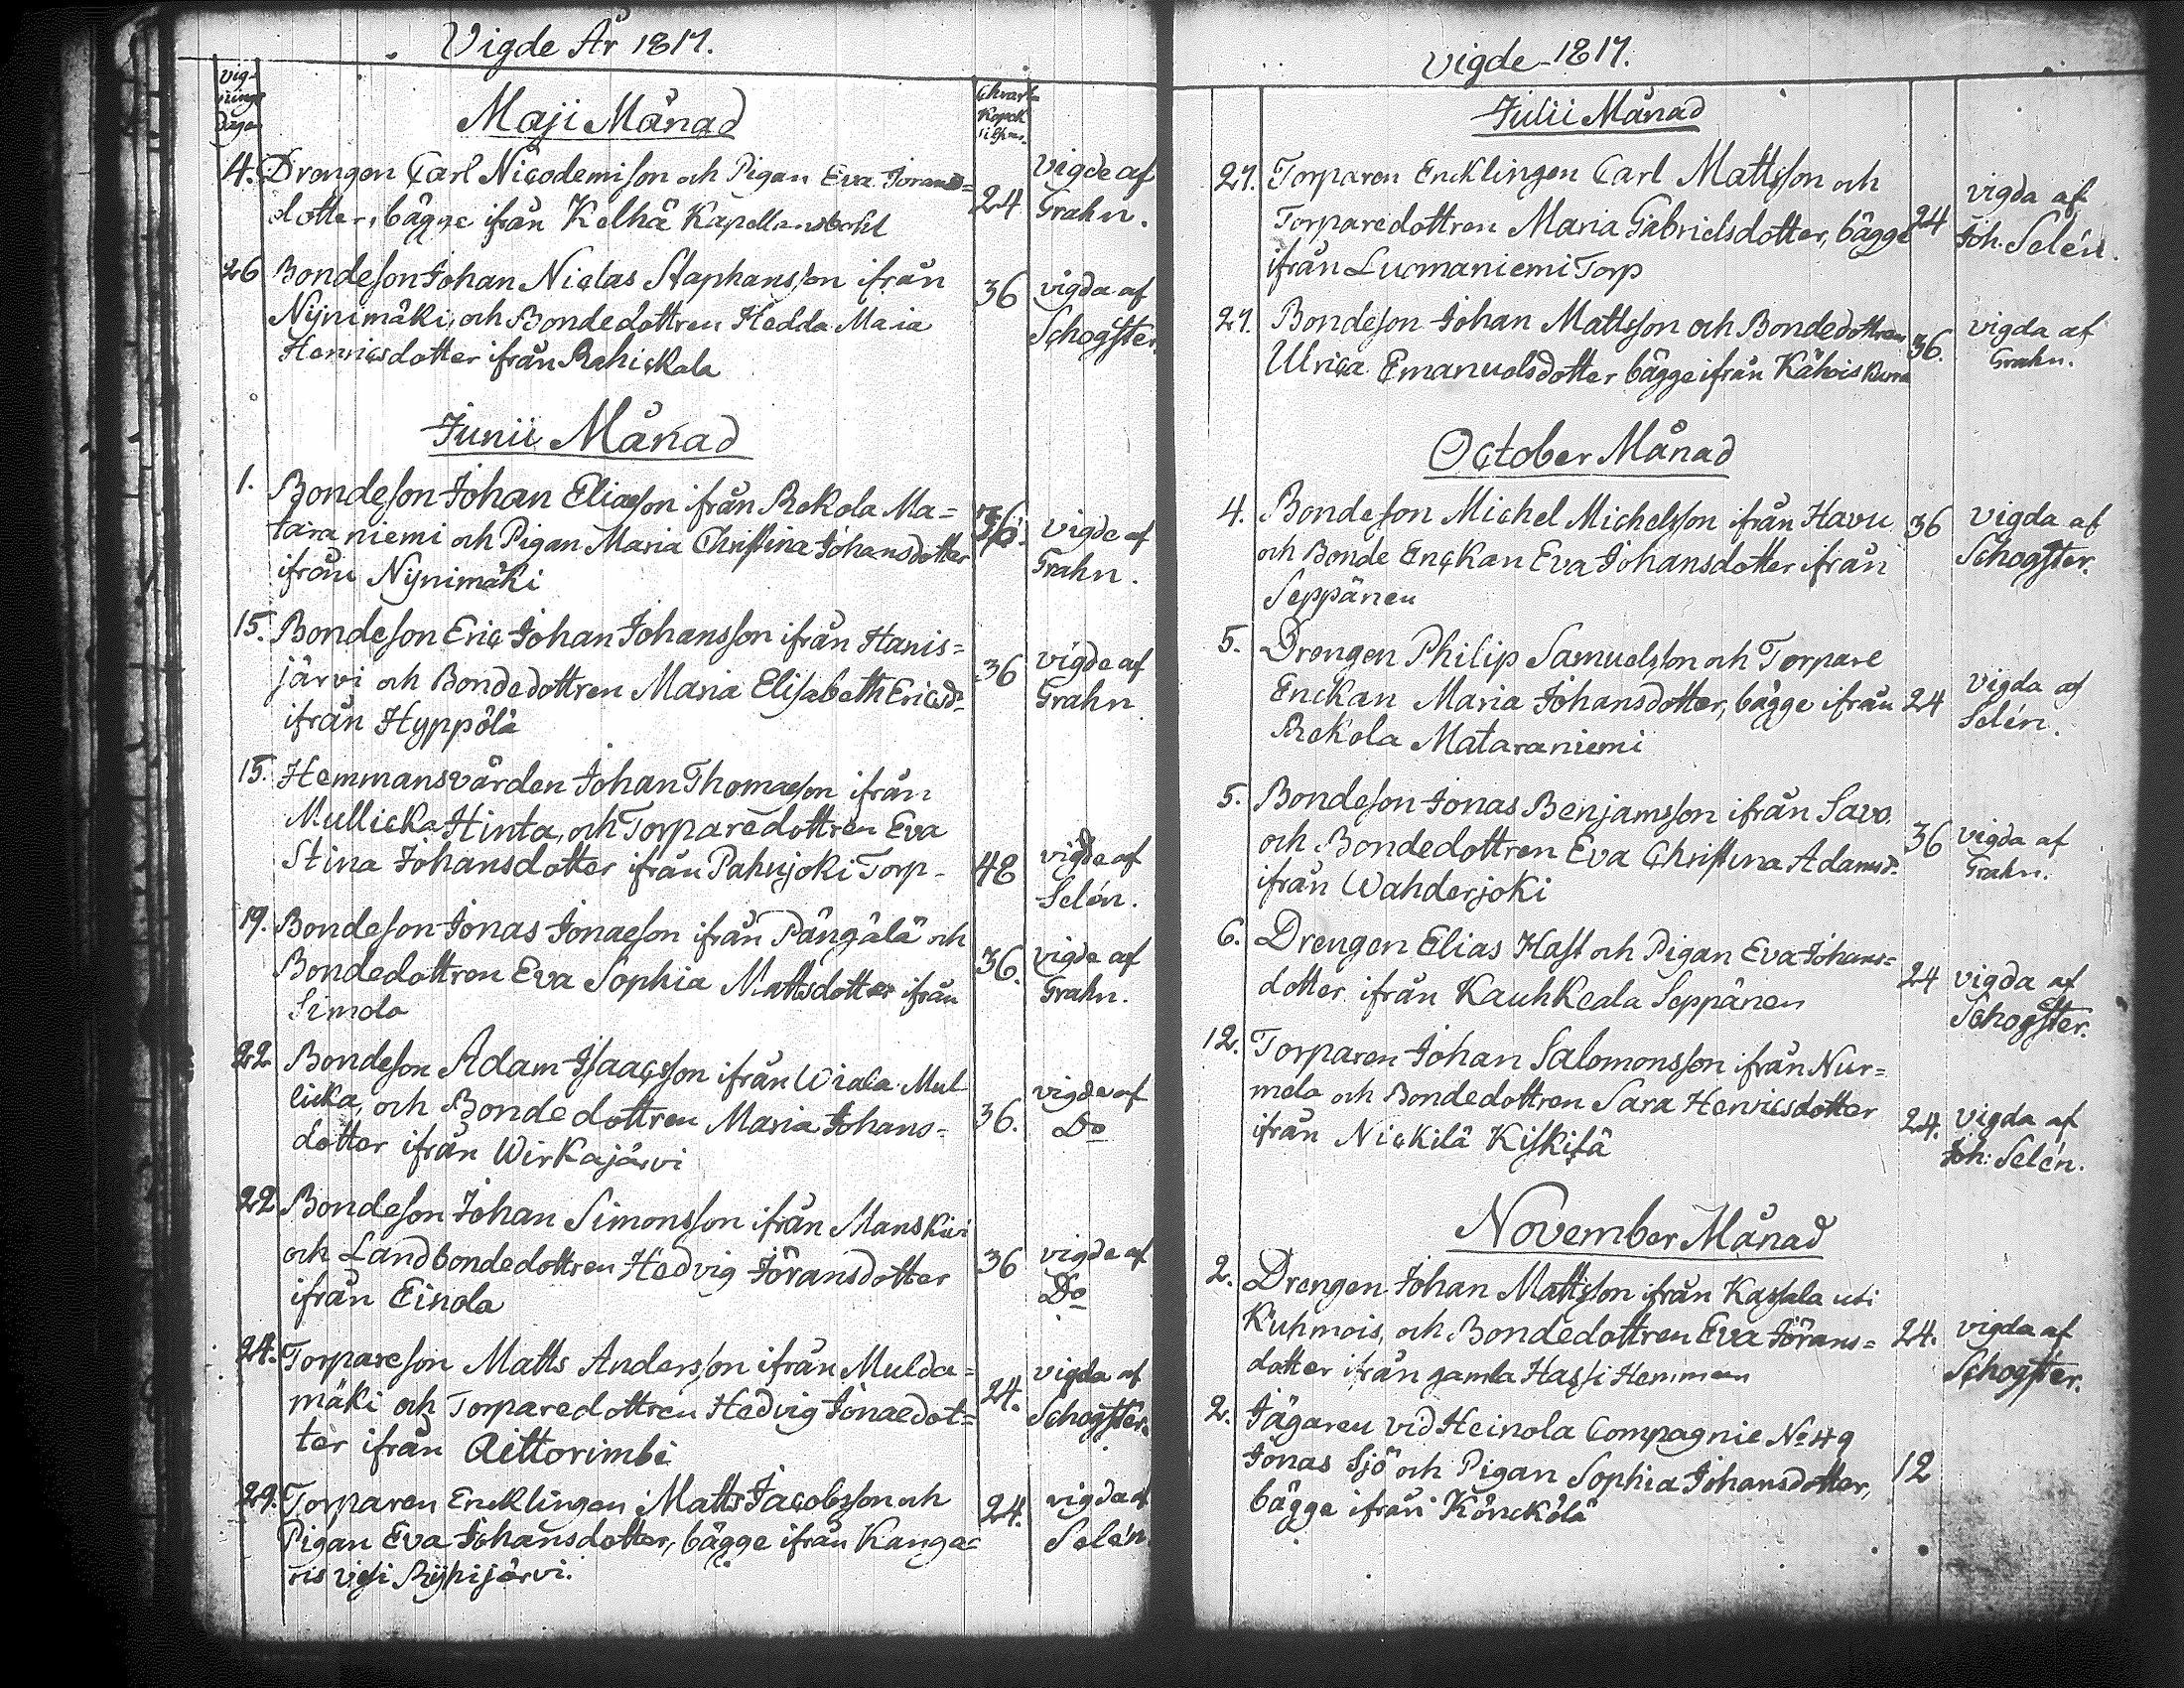 Vigde År 1817.
Vig-
nings
dagen
Maji Månad
Qhvart
Kopek
silfver
4. Drengen Carl Nicodemisson och Pigan Eva Jörans=
dotter, bägge ifrån Kelhä Kapellansbohl
24
Vigde af
Grahn.
26 Bondeson Johan Niclas Staphansson ifrån
Nijnimäki, och Bondedottren Hedda Maia
Henricsdotter ifrån Rahickala
36
vigda af
Schogster.
Junii Månad
1. Bondeson Johan Eliaeson ifrån Rekola Ma=
taraniemi och Pigan Maria Christina Johansdotter
ifrån Nijnimäki
36.
vigde af
Grahn.
15. Bondeson Eric Johan Johansson ifrån Hanis=
järvi och Bondedottren Maria Elisabeth Ericsd:
ifrån Hyppölä
36
vigde af
Grahn
15. Hemmansvärden Johan Thomaeson ifrån
Mullicka Hinta, och Torparedottren Eva
Stina Johansdotter ifrån Pahujoki Torp-
48
vigde af
Selén.
19. Bondeson Jonas Jonaeson ifrån Pängälä och
Bondedottren Eva Sophia Mattsdotter ifrån
Simola
36.
vigde af
Grahn.
22 Bondeson Adam Isaacsson ifrån Wiala Mul
licka, och Bondedottren Maria Johans=
dotter ifrån Wirkajärvi
36.
vigde af
Do
22 Bondeson Johan Simonsson ifrån Manskivi
och Landbondedottren Hedvig Jöransdotter
ifrån Einola
36
vigde af
Do
24. Torpareson Matts Andersson ifrån Mulda=
mäki och Torparedottren Hedvig Jonaedot=
ter ifrån Aittorimbi
24.
vigda af
Schogster.
29. Torparen Encklingen Matts Jacobsson och
Pigan Eva Johansdotter, bägge ifrån Kanga=
ris vesi Ryhijärvi.
24.
vigda af
Selén.
vigde 1817.
Julii Månad
27. Torparen Encklingen Carl Mattsson och
Torparedottren Maria Gabrielsdotter, bägge
ifrån Luomaniemi Torp
24
vigda af
Joh: Selén.
27. Bondeson Johan Mattsson och Bondedottren
Ulrica Emanuelsdotter bägge ifrån Kähois Kurra
36.
vigda af
Grahn.
October Månad
4. Bondeson Michel Michelsson ifrån Havu
och Bonde Enckan Eva Johansdotter ifrån
Seppänen
36
vigda af
Schogster.
5. Drengen Philip Samuelsson och Torpare
Enckan Maria Johansdotter, bägge ifrån
Rekola Mataraniemi
24
vigda af
Selén.
5. Bondeson Jonas Benjamsson ifrån Savo
och Bondedottren Eva Christina Adamsd:
ifrån Wahderjoki
36
vigda af
Grahn.
6. Drengen Elias Hast och Pigan Eva Johans=
dotter ifrån Kauhkeala Seppänen
24
vigda af
Schogster.
12. Torparen Johan Salomonsson ifrån Nur=
mela och Bondedottren Sara Henricsdotter
ifrån Nickilä Kiskilä
24.
vigda af
Joh: Selén.
November Månad
2. Drengen Johan Mattsson ifrån Kassala uti
Kuhmois, och Bondedottren Eva Jörans=
dotter ifrån gamla Hassi Hemman
24.
vigda af
Schogster.
2. Jägaren vid Heinola Compagnie No 49
Jonas Sjö och Pigan Sophia Johansdotter,
bägge ifrån Könckölä
12